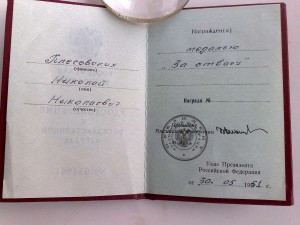 (фамилия)
Николай
(имя)
Николаевич
(отчество)
Награжден(а)
медалью
„За отвагу"
Награда №
Президент
Российской Федерации
Указ Президента
Российской Федерации
от 30. 05 1951 г.